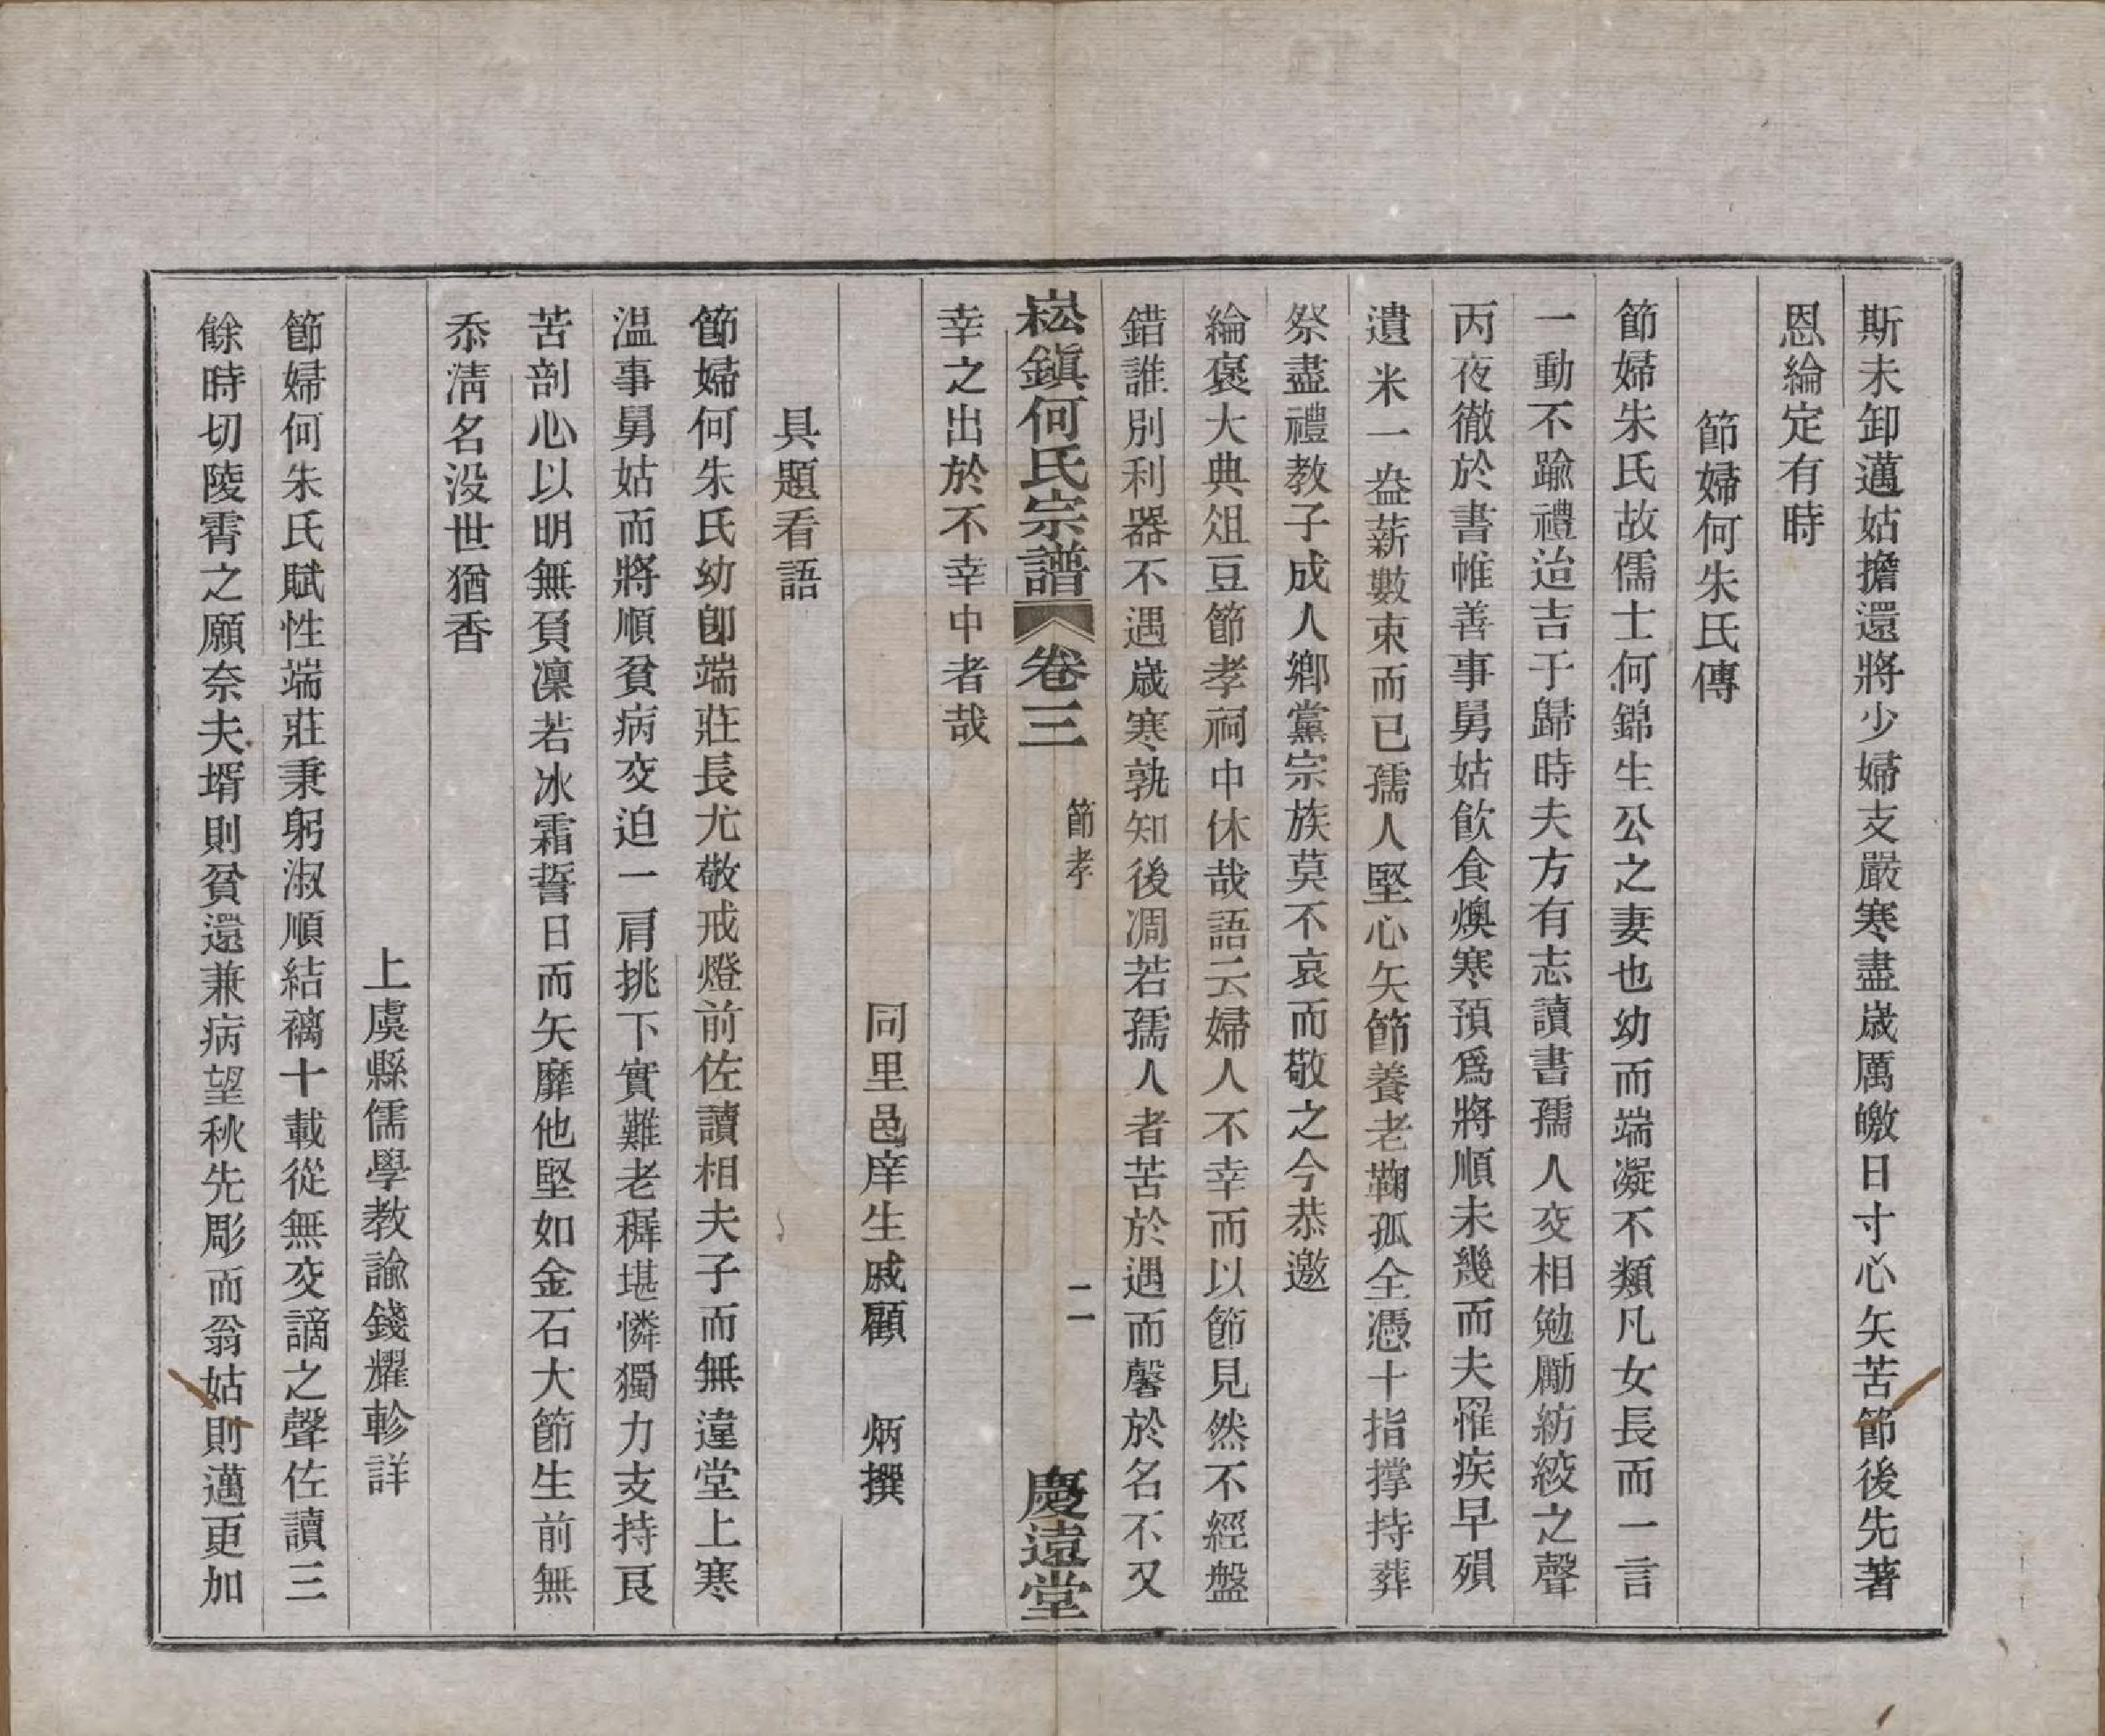 斯未卸邁姑擔還將少婦支嚴寒盡歲厲皦日寸心矢苦節後先著
恩綸定有時
節婦何朱氏傳
節婦朱氏故儒士何錦生公之妻也幼而端凝不類凡女長而一言
一動不踰禮迨吉于歸時夫方有志讀書孺人交相勉勵紡絞之聲
丙夜徹於書帷善事舅姑飲食燠寒預爲將順未幾而夫罹疾早殞
遺米一盎薪數束而已孺人堅心矢節養老鞠孤全憑十指撐持葬
祭盡禮教子成人鄉黨宗族莫不哀而敬之今恭邀
綸褒大典俎豆節孝祠中休哉語云婦人不幸而以節見然不經盤
錯誰別利器不遇歲寒孰知後凋若孺人者苦於遇而馨於名不又
崧鎭何氏宗譜 卷三 節孝 二 慶遠堂
幸之出於不幸中者哉
同里邑庠生戚顧 炳撰
具題看語
節婦何朱氏幼卽端莊長尤敬戒燈前佐讀相夫子而無違堂上寒
温事舅姑而將順貧病交迫一肩挑下實難老穉堪憐獨力支持艮
苦剖心以明無負凜若冰霜誓日而矢靡他堅如金石大節生前無
忝淸名没世猶香
上虞縣儒學教諭錢耀軫詳
節婦何朱氏賦性端莊秉躬淑順結褵十載從無交謫之聲佐讀三
餘時切陵霄之願奈夫壻則貧還兼病望秋先彫而翁姑則邁更加